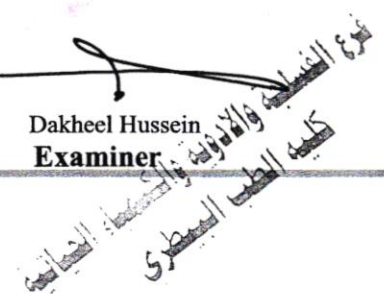 Dakheel Hussein
Examiner
فرع الفسلجة والادوية والكيمياء الحياتية
كلية الطب البيطري